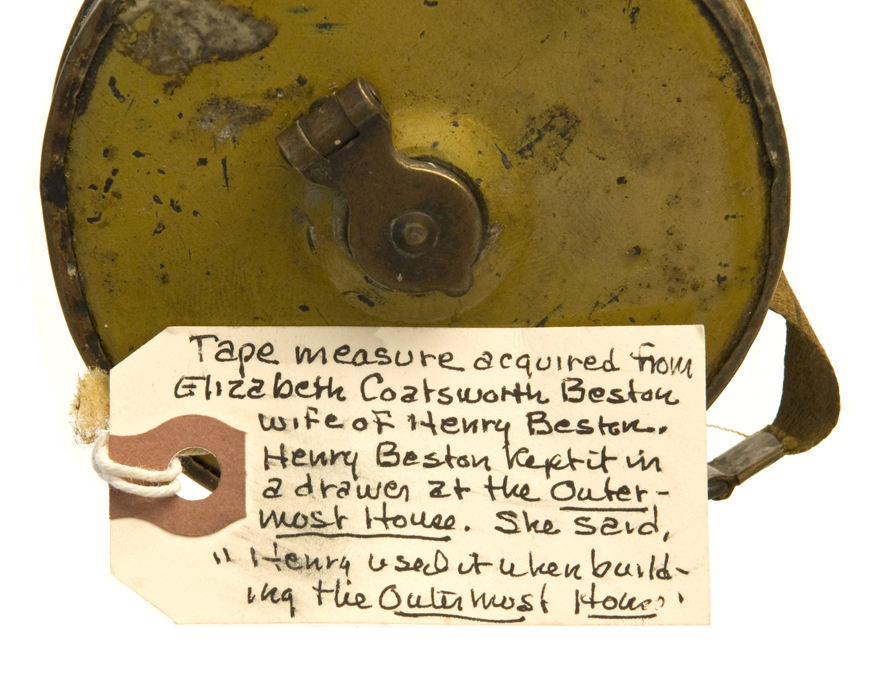 Tape measure acquired from
Elizabeth Coatsworth Beston
wife of Henry Beston.
Henry Beston kept it in
a drawer at the Outer-
most House. She said,
"Henry used it when build-
ing the Outermost House"